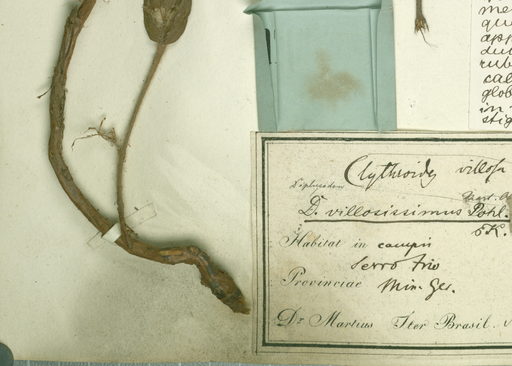 me
qu
app
dub
rub
cal
glob
in
stig
Clythroides villosa
Diplusodon Mart.
D. villosissimus Pohl.
Habitat in campis
Serro frio
Provinciae Min. Ger.
Dr Martius Iter Brasil.